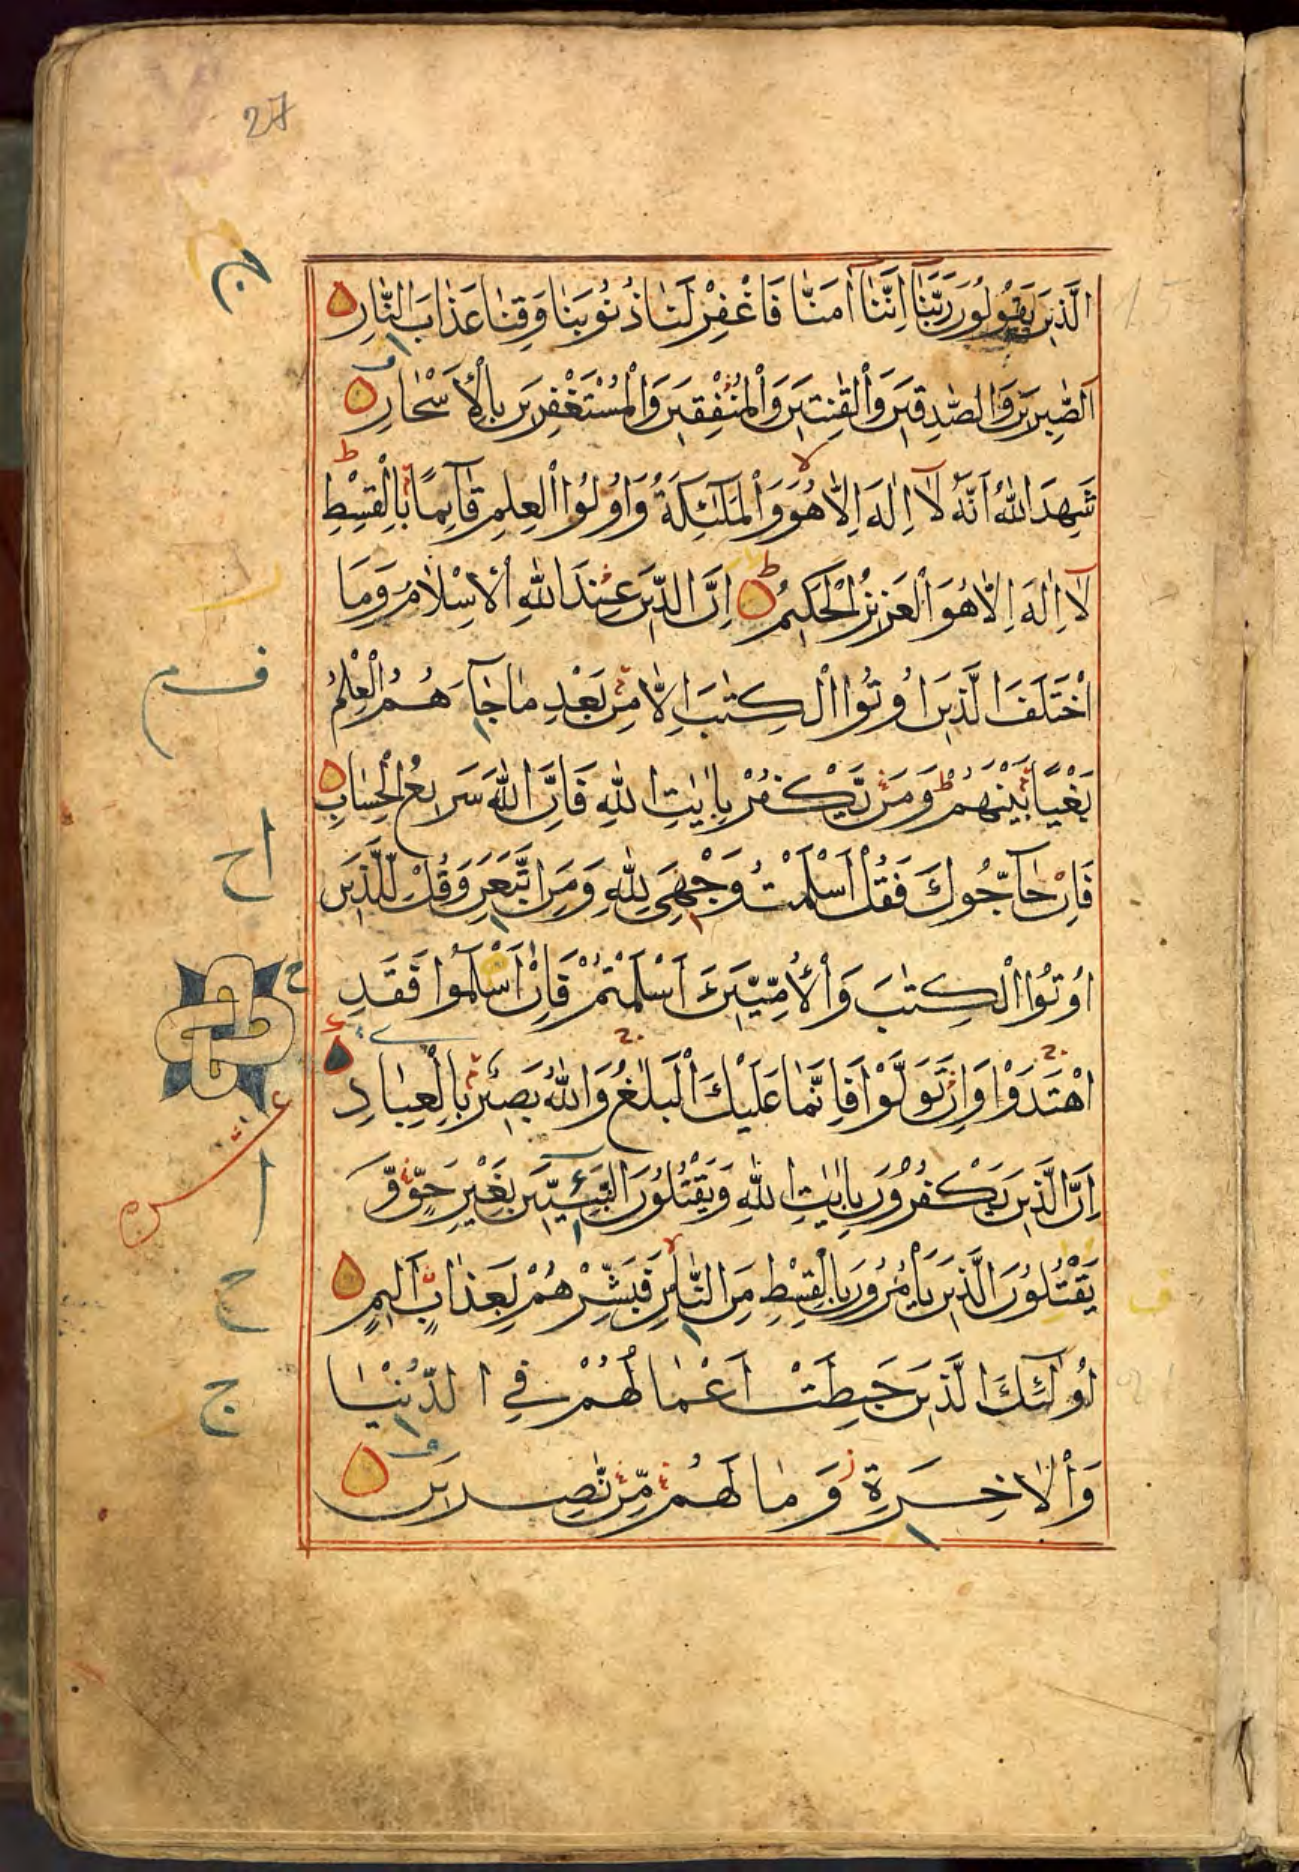 27
الَّذِينَ يَقُولُونَ رَبَّنَآ اِنَّنَآ اٰمَنَّا فَاغْفِرْ لَنَا ذُنُوبَنَا وَقِنَا عَذَابَ النَّارِ
اَلصّٰبِرِينَ وَالصّٰدِقِينَ وَالْقٰنِتِينَ وَالْمُنْفِقِينَ وَالْمُسْتَغْفِرِينَ بِالْاَسْحَارِ
شَهِدَ اللّٰهُ اَنَّهُ لَآ اِلٰهَ اِلَّا هُوَ وَالْمَلٰٓئِكَةُ وَاُولُوا الْعِلْمِ قَآئِمًا بِالْقِسْطِ
لَآ اِلٰهَ اِلَّا هُوَ الْعَزِيزُ الْحَكِيمُ اِنَّ الدِّينَ عِنْدَ اللّٰهِ الْاِسْلَامُ وَمَا
اخْتَلَفَ الَّذِينَ اُوتُوا الْكِتٰبَ اِلَّا مِنْ بَعْدِ مَا جَآءَهُمُ الْعِلْمُ
بَغْيًا بَيْنَهُمْ وَمَنْ يَّكْفُرْ بِاٰيٰتِ اللّٰهِ فَاِنَّ اللّٰهَ سَرِيعُ الْحِسَابِ
فَاِنْ حَآجُّوكَ فَقُلْ اَسْلَمْتُ وَجْهِيَ لِلّٰهِ وَمَنِ اتَّبَعَنِ وَقُلْ لِلَّذِينَ
اُوتُوا الْكِتٰبَ وَالْاُمِّيِّينَ ءَاَسْلَمْتُمْ فَاِنْ اَسْلَمُوا فَقَدِ
اهْتَدَوْا وَاِنْ تَوَلَّوْا فَاِنَّمَا عَلَيْكَ الْبَلٰغُ وَاللّٰهُ بَصِيرٌ بِالْعِبَادِ
اِنَّ الَّذِينَ يَكْفُرُونَ بِاٰيٰتِ اللّٰهِ وَيَقْتُلُونَ النَّبِيِّينَ بِغَيْرِ حَقٍّ وَّ
يَقْتُلُونَ الَّذِينَ يَاْمُرُونَ بِالْقِسْطِ مِنَ النَّاسِ فَبَشِّرْهُمْ بِعَذَابٍ اَلِيمٍ
اُولٰٓئِكَ الَّذِينَ حَبِطَتْ اَعْمَالُهُمْ فِي الدُّنْيَا
وَالْاٰخِرَةِ وَمَا لَهُمْ مِّنْ نّٰصِرِينَ